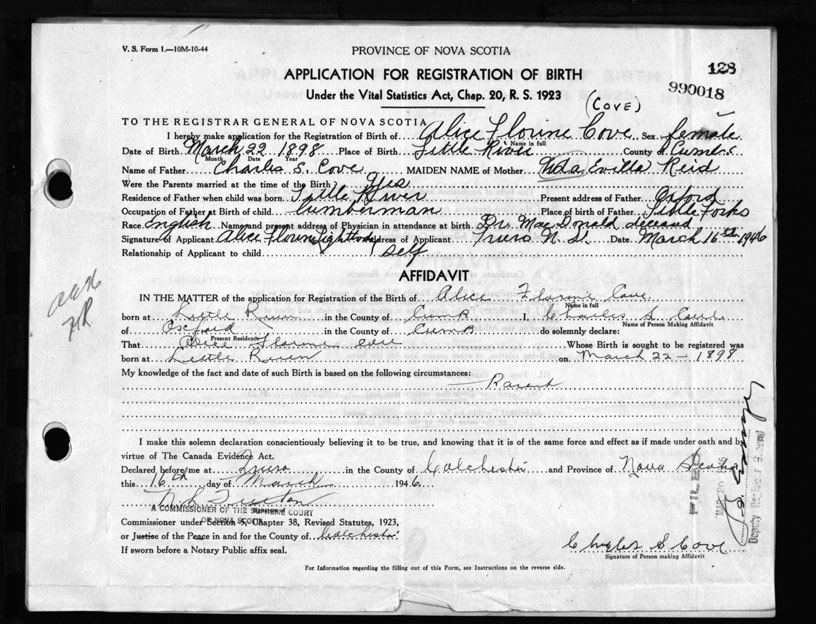 V. S. Form 1.—10M-10-44
PROVINCE OF NOVA SCOTIA
128
APPLICATION FOR REGISTRATION OF BIRTH
990018
Under the Vital Statistics Act, Chap. 20, R. S. 1923
(COVE)
TO THE REGISTRAR GENERAL OF NOVA SCOTIA
I hereby make application for the Registration of Birth of Alice Florine Cove Sex female
Name in full
Date of Birth March 22 1898 Place of Birth Little River County of Cumb.
Month Date Year
Name of Father Charles S. Cove MAIDEN NAME of Mother Evilla Reid
Were the Parents married at the time of the Birth? Yes
Residence of Father when child was born Little River Present address of Father Oxford
Occupation of Father at Birth of child Lumberman Place of birth of Father Little Forks
Race English Name and present address of Physician in attendance at birth Dr. MacDonald deceased
Signature of Applicant Alice Florine Address of Applicant Truro N. S. Date March 16th 1946
Relationship of Applicant to child Self
AFFIDAVIT
IN THE MATTER of the application for Registration of the Birth of Alice Florine Cove
Name in full
born at Little River in the County of Cumb I, Charles S Cove
Name of Person Making Affidavit
of Oxford in the County of Cumb do solemnly declare:
Present Residence
That Alice Florine Cove Whose Birth is sought to be registered was
born at Little River on March 22 - 1898
My knowledge of the fact and date of such Birth is based on the following circumstances:
Parent
I make this solemn declaration conscientiously believing it to be true, and knowing that it is of the same force and effect as if made under oath and by
virtue of The Canada Evidence Act.
Declared before me at Truro in the County of Colchester and Province of Nova Scotia
this 16th day of March 1946
A COMMISSIONER OF THE SUPREME COURT
OF NOVA SCOTIA
Commissioner under Section 5, Chapter 38, Revised Statutes, 1923,
or Justice of the Peace in and for the County of Colchester
If sworn before a Notary Public affix seal.
Charles S Cove
Signature of Person making Affidavit
For Information regarding the filling out of this Form, see Instructions on the reverse side.
FILED
Deputy Registrar